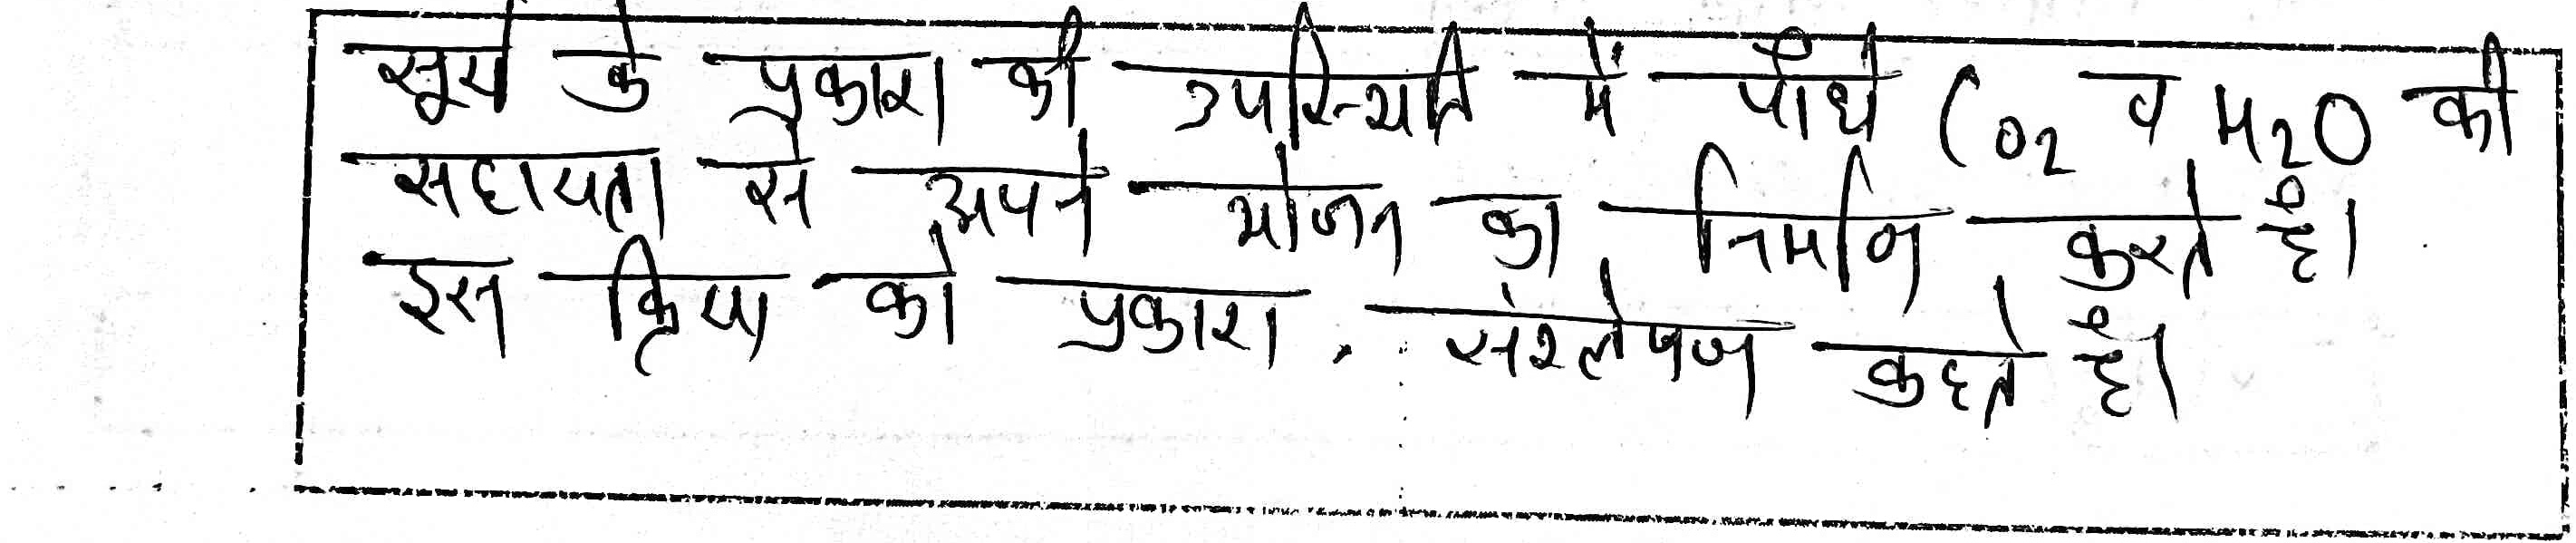 सूर्य के प्रकाश की उपस्थिति में पौधे CO2 व H2O की
सहायता से अपने भोजन का निर्माण करते है।
इस क्रिया को प्रकाश संश्लेषण कहते है।